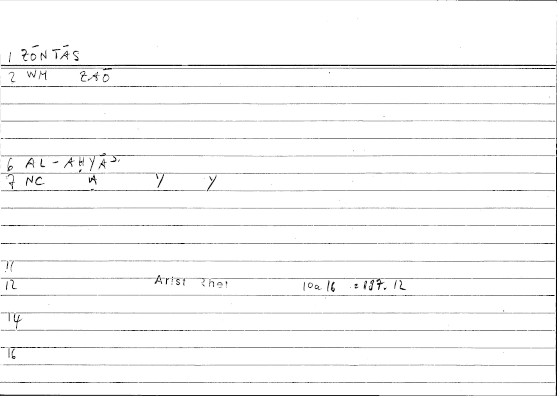 1 ZŌNTĀS
2 WM ZAŌ
6 AL-AḤYĀʾ
7 NC Ḥ Y Y
11
12 Arist Rhet 10a 16 = 187.12
14
16